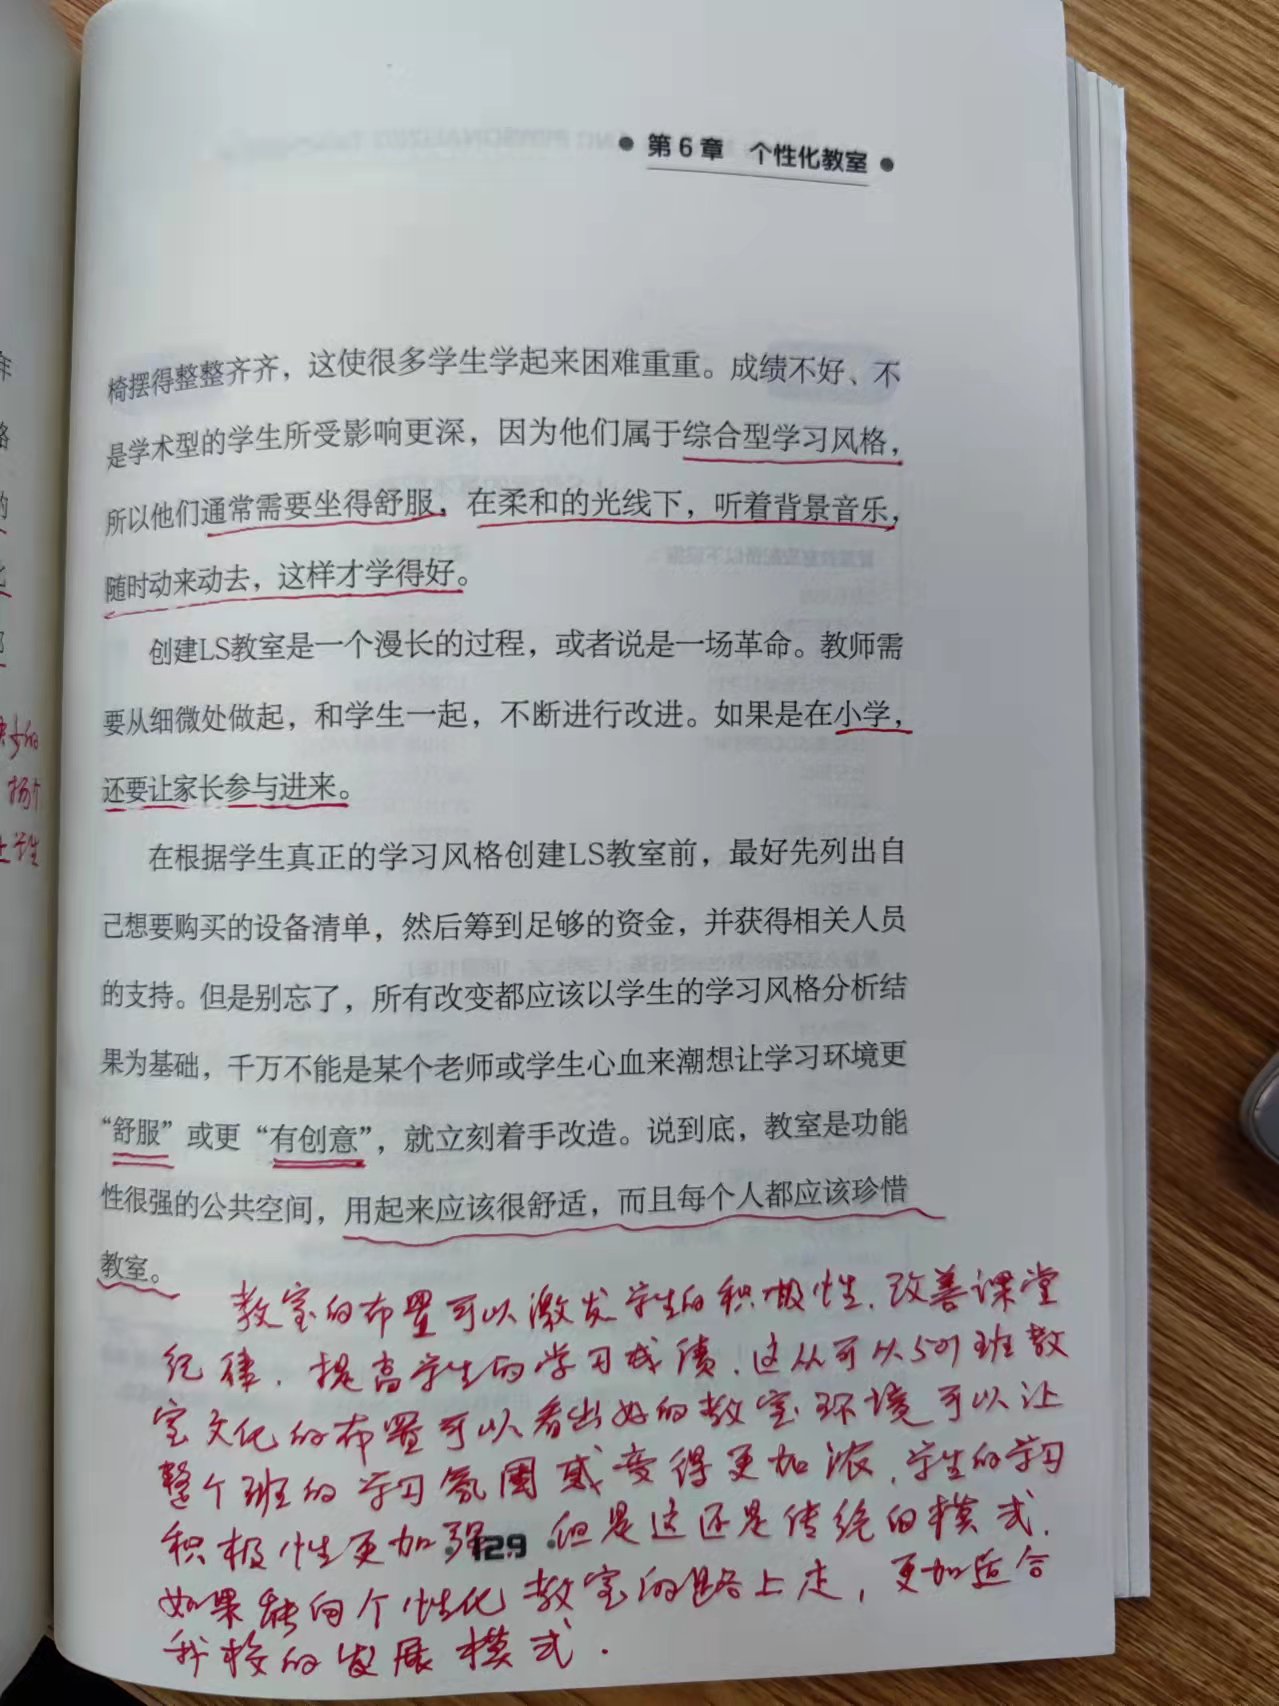 第6章 个性化教室
椅摆得整整齐齐，这使很多学生学起来困难重重。成绩不好、不
是学术型的学生所受影响更深，因为他们属于综合型学习风格，
所以他们通常需要坐得舒服，在柔和的光线下，听着背景音乐，
随时动来动去，这样才学得好。
创建LS教室是一个漫长的过程，或者说是一场革命。教师需
要从细微处做起，和学生一起，不断进行改进。如果是在小学，
还要让家长参与进来。
在根据学生真正的学习风格创建LS教室前，最好先列出自
己想要购买的设备清单，然后筹到足够的资金，并获得相关人员
的支持。但是别忘了，所有改变都应该以学生的学习风格分析结
果为基础，千万不能是某个老师或学生心血来潮想让学习环境更
“舒服”或更“有创意”，就立刻着手改造。说到底，教室是功能
性很强的公共空间，用起来应该很舒适，而且每个人都应该珍惜
教室。
教室的布置可以激发学生的积极性、改善课堂
纪律、提高学生的学习成绩、这从可从501班教
室文化的布置可以看出好的教室环境可以让
整个班的学习氛围感变得更加浓，学生的学习
积极性更加强 但是这还是传统的模式.
129
如果能向个性化教室的路上走，更加适合
我校的发展模式.